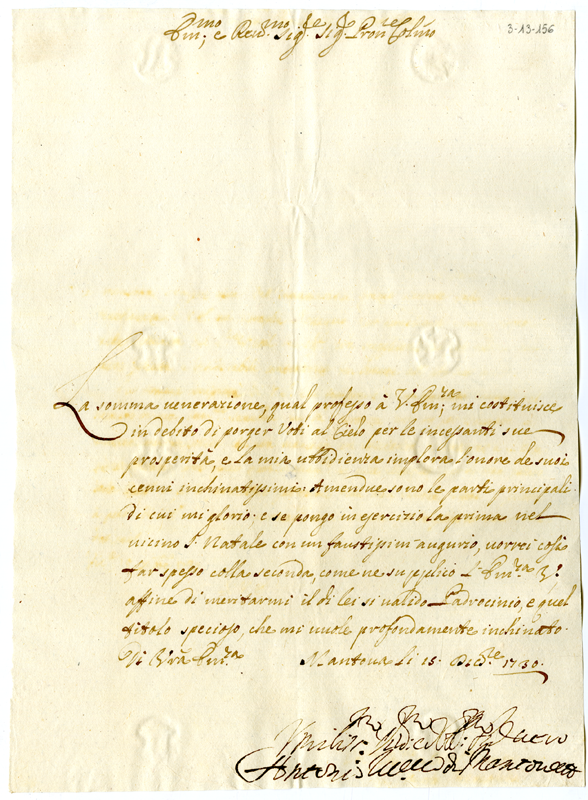 Em.mo; e Rev.mo Sig.re Sig.r Pron.ce Col.mo
3-13-156
La somma venerazione, qual professo à V. Em;za mi costituisce
in debito di porger Voti al Cielo per le incessanti sue
prosperità, e la mia ubbidienza implora l'onore de suoi
cenni inchinatissimi. Amendue sono le parti principali
di cui mi glorio; e se pongo in esercizio la prima nel
vicino S. Natale con un faustissim augurio, vorrei così
far spesso colla seconda, come ne supplico l' Em.za V.a
affine di meritarmi il di lei si valido Padrocinio, e quel
titolo specioso, che mi vuole profondamente inchinato.
Di Vra Em.za Mantova li 15. Dic.re 1730.
Umiliss.mo
Antonio Vesc.o di Mantova